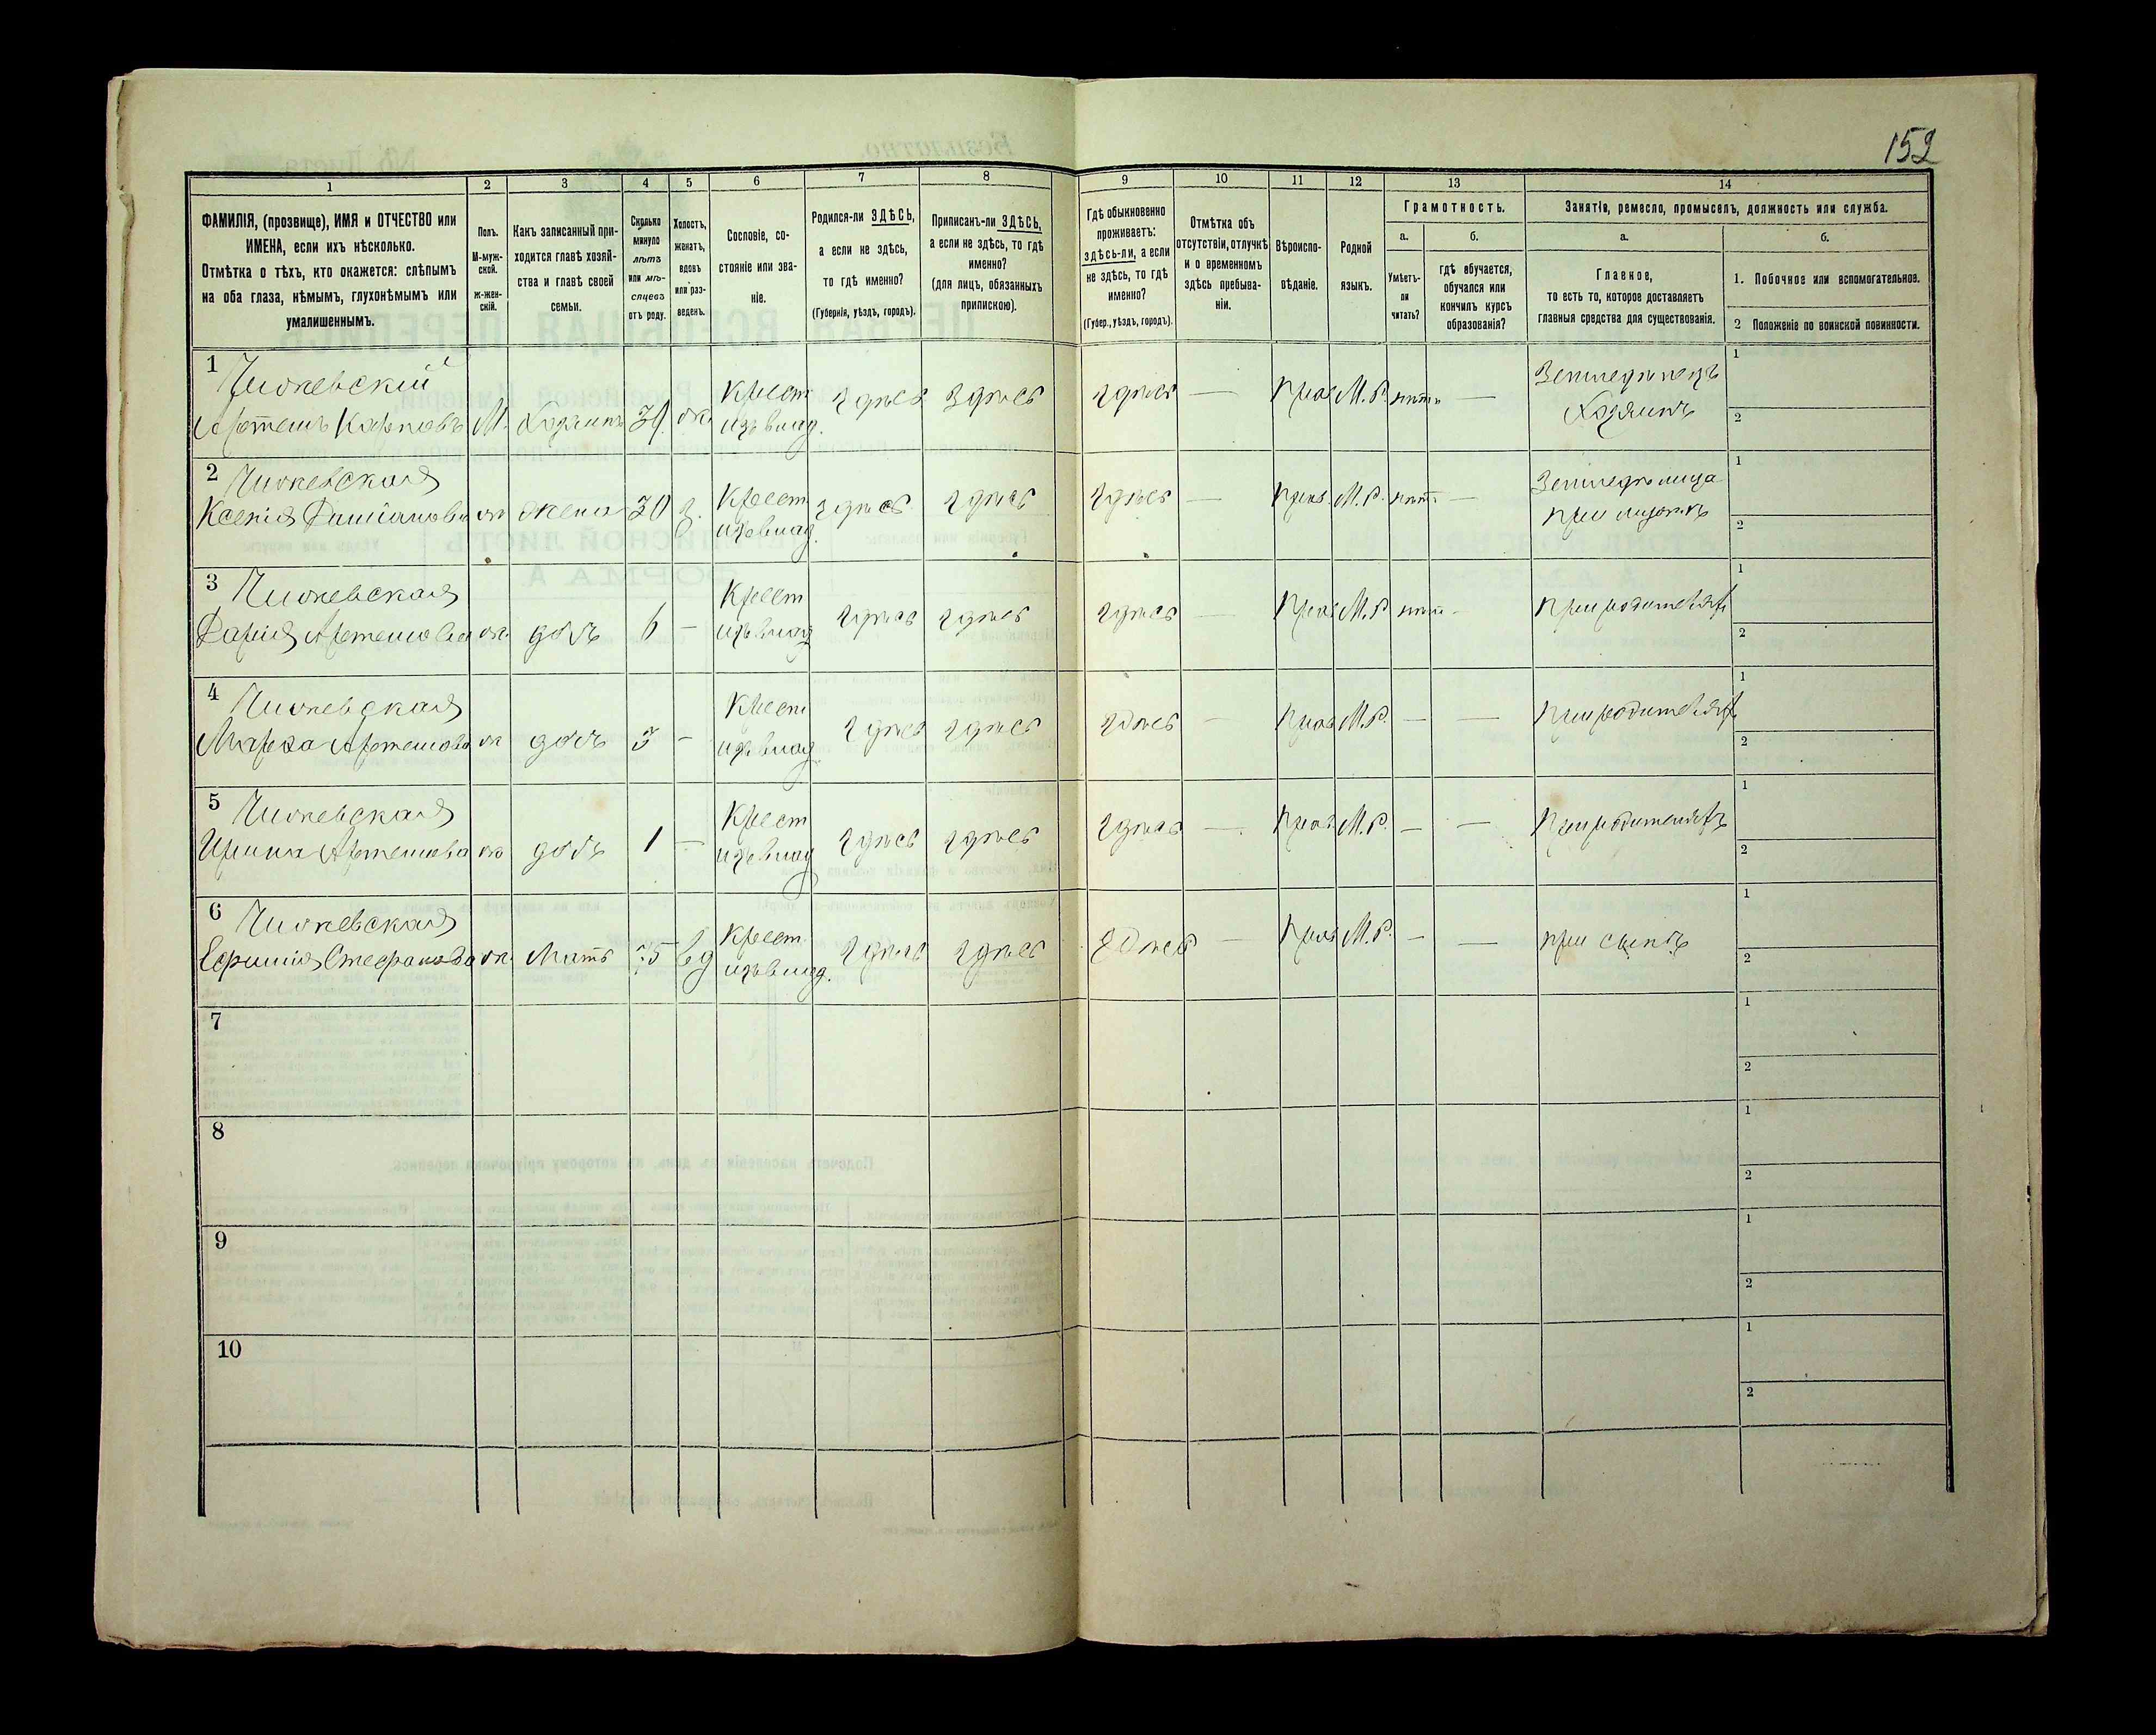 152
1 2 3 4 5 6 7 8 9 10 11 12 13 14
ФАМИЛІЯ, (прозвище), ИМЯ и ОТЧЕСТВО или
ИМЕНА, если ихъ нѣсколько.
Отмѣтка о тѣхъ, кто окажется: слѣпымъ
на оба глаза, нѣмымъ, глухонѣмымъ или
умалишеннымъ.
Полъ.
М-муж-
ской.
ж-жен-
скій.
Какъ записанный при-
ходится главѣ хозяй-
ства и главѣ своей
семьи.
Сколько
минуло
лѣтъ
или мѣ-
сяцевъ
отъ роду.
Холостъ,
женатъ,
вдовъ
или раз-
веденъ.
Сословіе, со-
стояніе или зва-
ніе.
Родился-ли ЗДѢСЬ,
а если не здѣсь,
то гдѣ именно?
(Губернія, уѣздъ, городъ).
Приписанъ-ли ЗДѢСЬ,
а если не здѣсь, то гдѣ
именно?
(для лицъ, обязанныхъ
припискою).
Гдѣ обыкновенно
проживаетъ:
здѣсь-ли, а если
не здѣсь, то гдѣ
именно?
(Губер., уѣздъ, городъ).
Отмѣтка объ
отсутствіи, отлучкѣ
и о временномъ
здѣсь пребыва-
ніи.
Вѣроиспо-
вѣданіе.
Родной
языкъ.
Грамотность.
а.
Умѣетъ-
ли
читать?
б.
гдѣ обучается,
обучался или
кончилъ курсъ
образованія?
Занятіе, ремесло, промыселъ, должность или служба.
а.
Главное,
то есть то, которое доставляетъ
главныя средства для существованія.
б.
1. Побочное или вспомогательное.
2 Положеніе по воинской повинности.
1
Артемъ Карповъ М. Хозяинъ ж. Крест. изъ влад. здѣсь здѣсь здѣсь — Прав М. Р. нѣтъ — Земледѣлецъ Хозяинъ 1 2
2
Ксенія Даміанова ж жена 30 з. Крест изъ влад. здѣсь здѣсь здѣсь — Прав. М. Р. нѣтъ — Земледѣлица при мужѣ 1 2
3
Дарія Артемова ж. дочь 6 — Крест изъ влад здѣсь здѣсь здѣсь — Прав М. Р нѣтъ - При родителяхъ 1 2
4
Марѳа Артемова ж дочь 3 — Крест изъ влад здѣсь здѣсь здѣсь — Прав М. Р. — — При родителяхъ 1 2
5
Ирина Артемова ж дочь 1 — Крест изъ влад здѣсь здѣсь здѣсь — Прав. М. Р. — — При родителяхъ 1 2
6
Ефимія Стефанова ж. Мать вд Крест изъ влад. здѣсь здѣсь здѣсь — Прав М. Р. — — при сынѣ 1 2
7 1 2
8 1 2
9 1 2
10 1 2